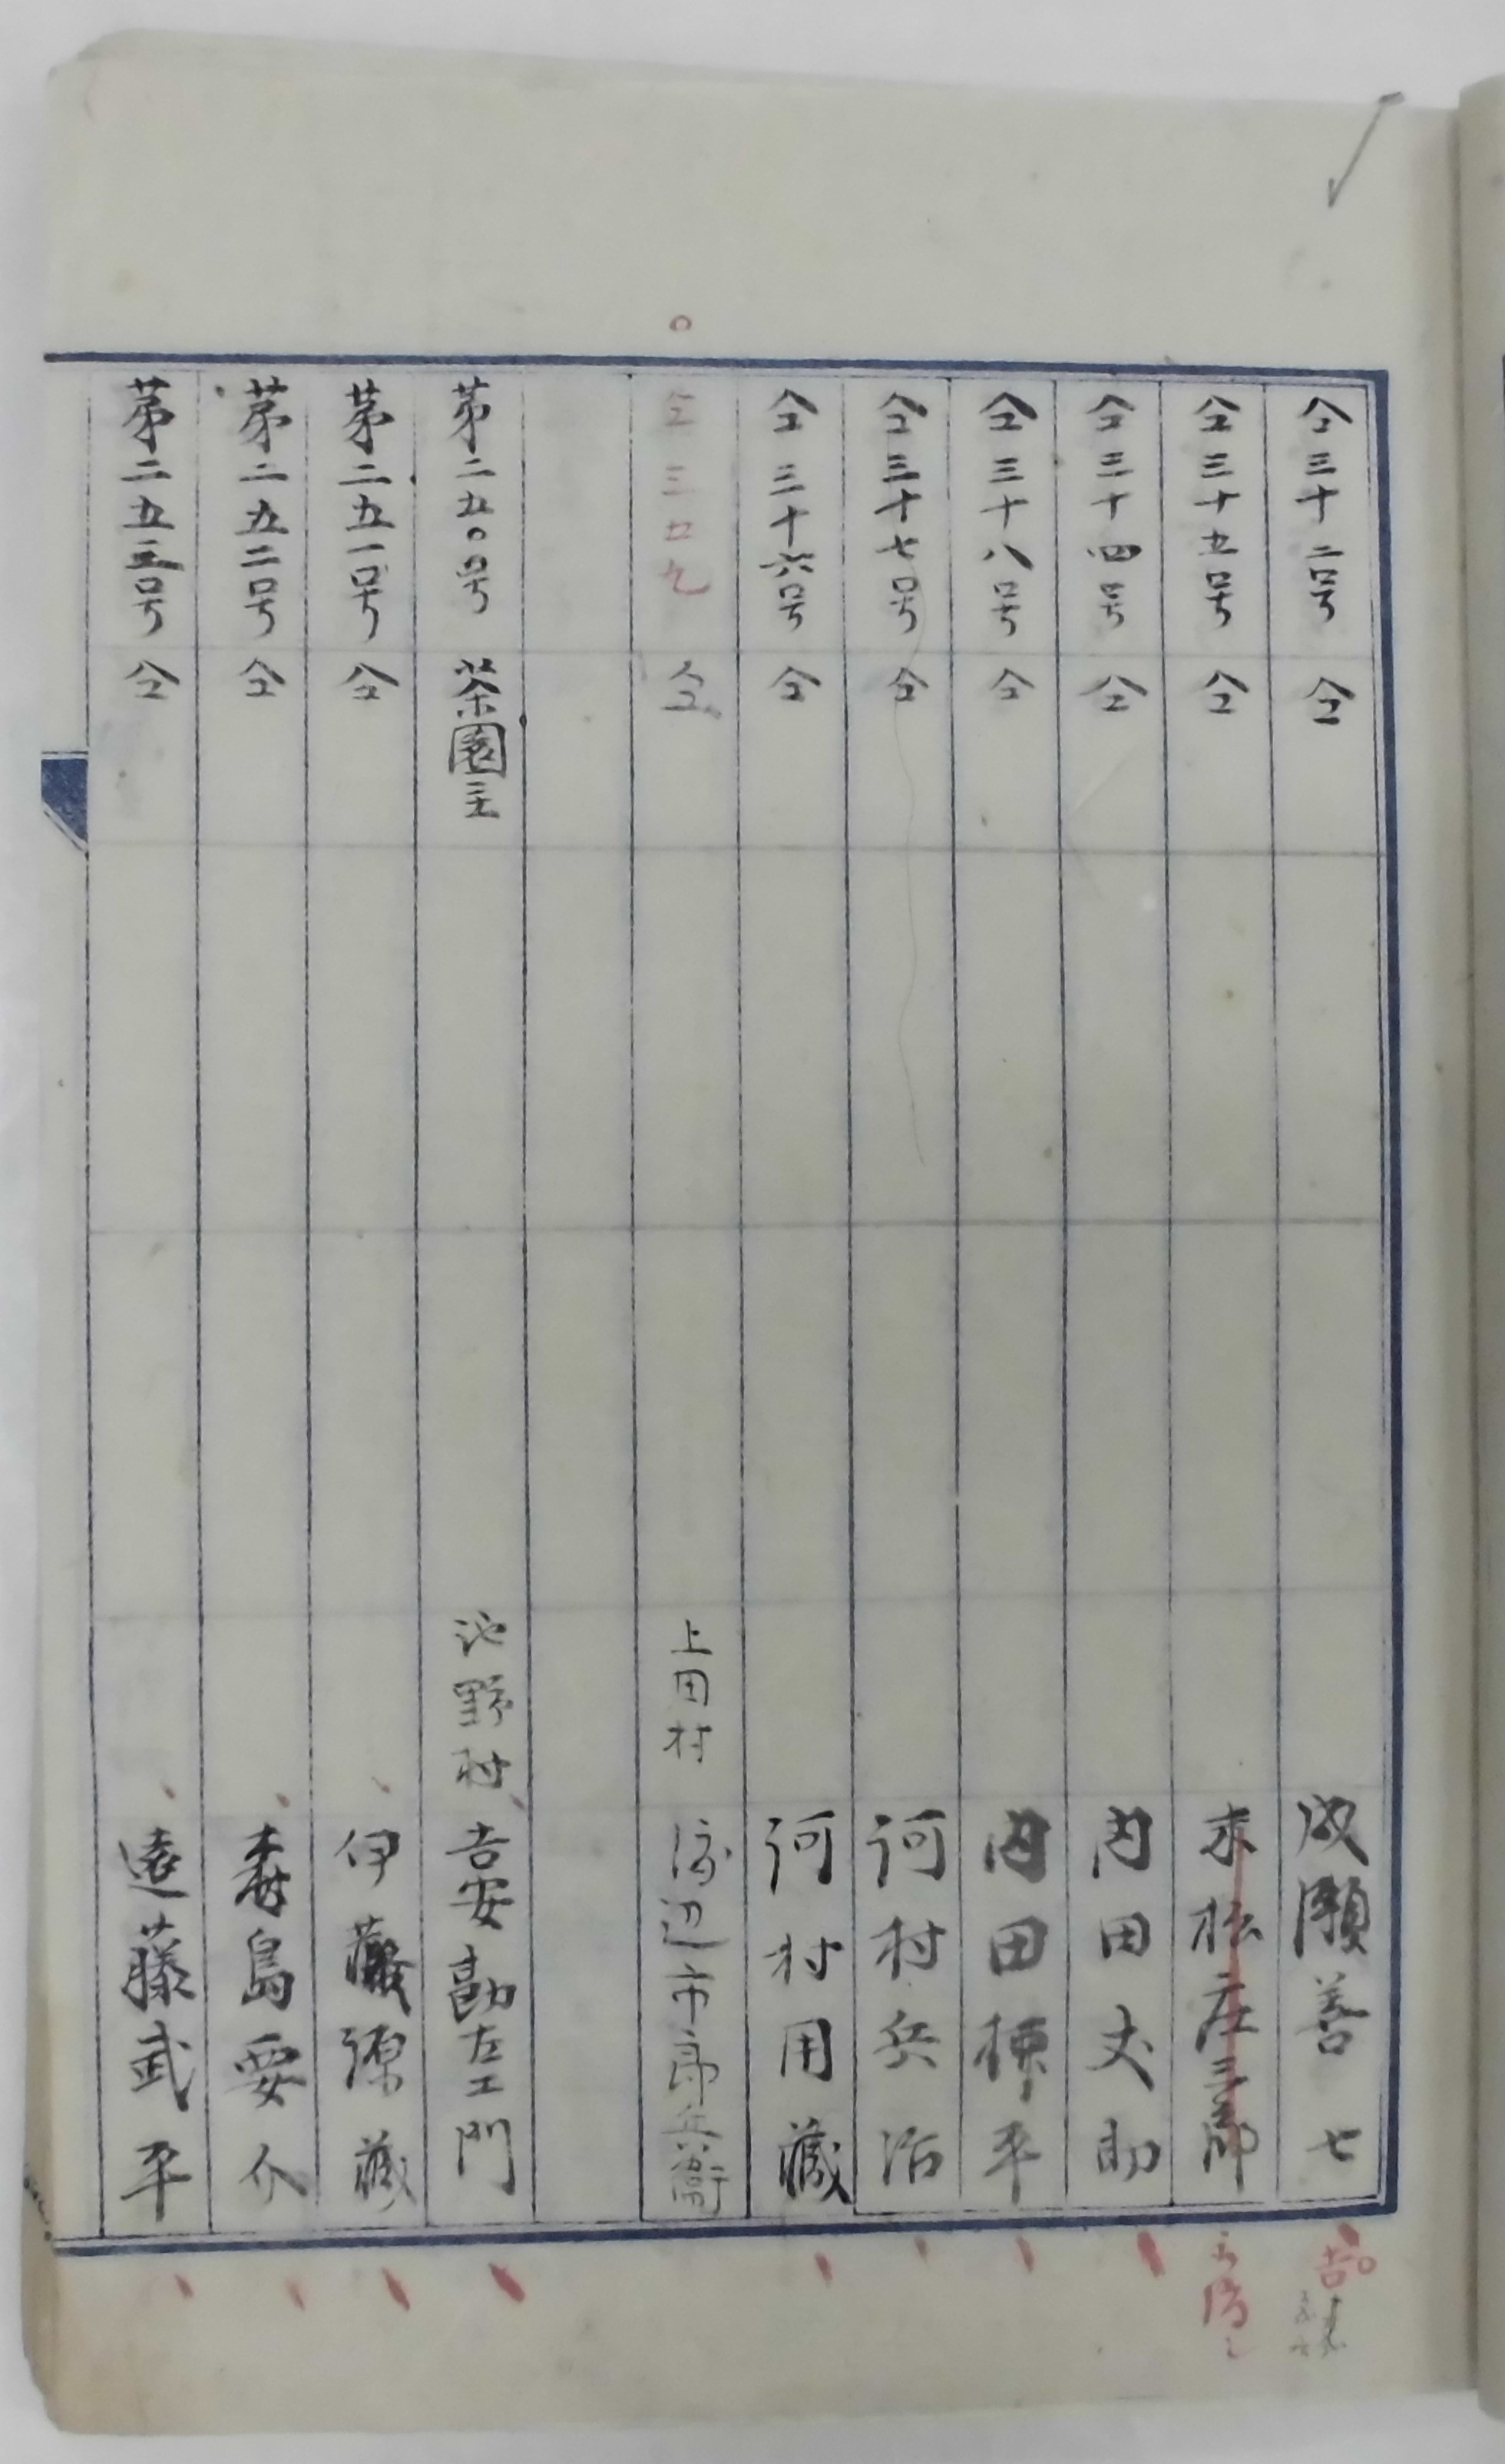 仝三十二号 仝 成瀬善七
仝三十五号 仝 末松庄三郎
仝三十四号 仝 内田丈助
仝三十八号 仝 内田楝平
仝三十七号 仝 河村兵治
仝三十六号 仝 河村用藏
仝三五九 仝 上田村 渡辺市郎兵衞
第二五〇号 茶園主 池野村 吉安勘左エ門
第二五一号 仝 伊藤源藏
第二五二号 仝 森島要介
第二五三号 仝 遠藤武平